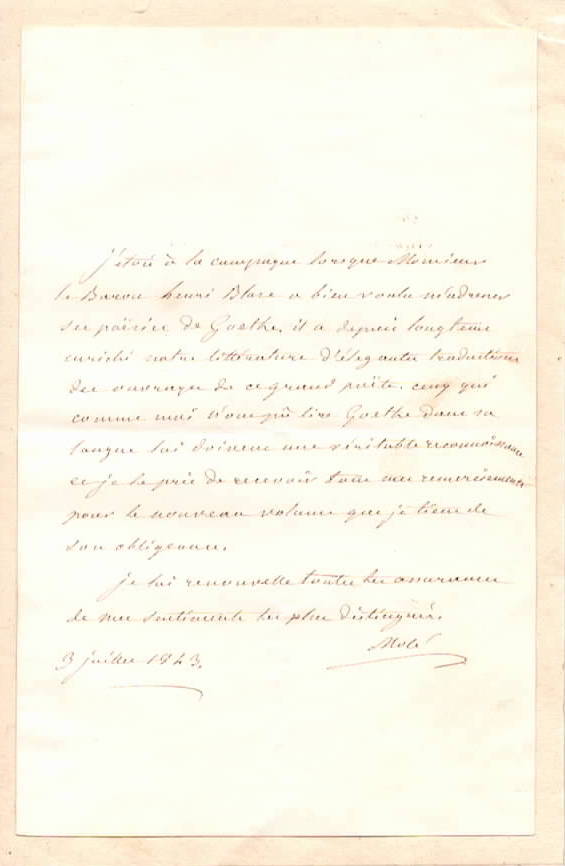 j'étois à la campagne lorsque Monsieur
le Baron henri Blaze a bien voulu m'adresser
ses poësies de Goethe, il a depuis longtems
enrichi notre littérature d'élégantes traductions
des ouvrages de ce grand poëte. ceux qui
comme moi n'ont pû lire Goethe dans sa
langue lui doivent une véritable reconnoissance
et je le prie de recevoir tous mes remerciements
pour le nouveau volume que je tiens de
son obligeance.
je lui renouvelle toutes les assurances
de mes sentiments les plus distingués.
Molé
3 juillet 1843.